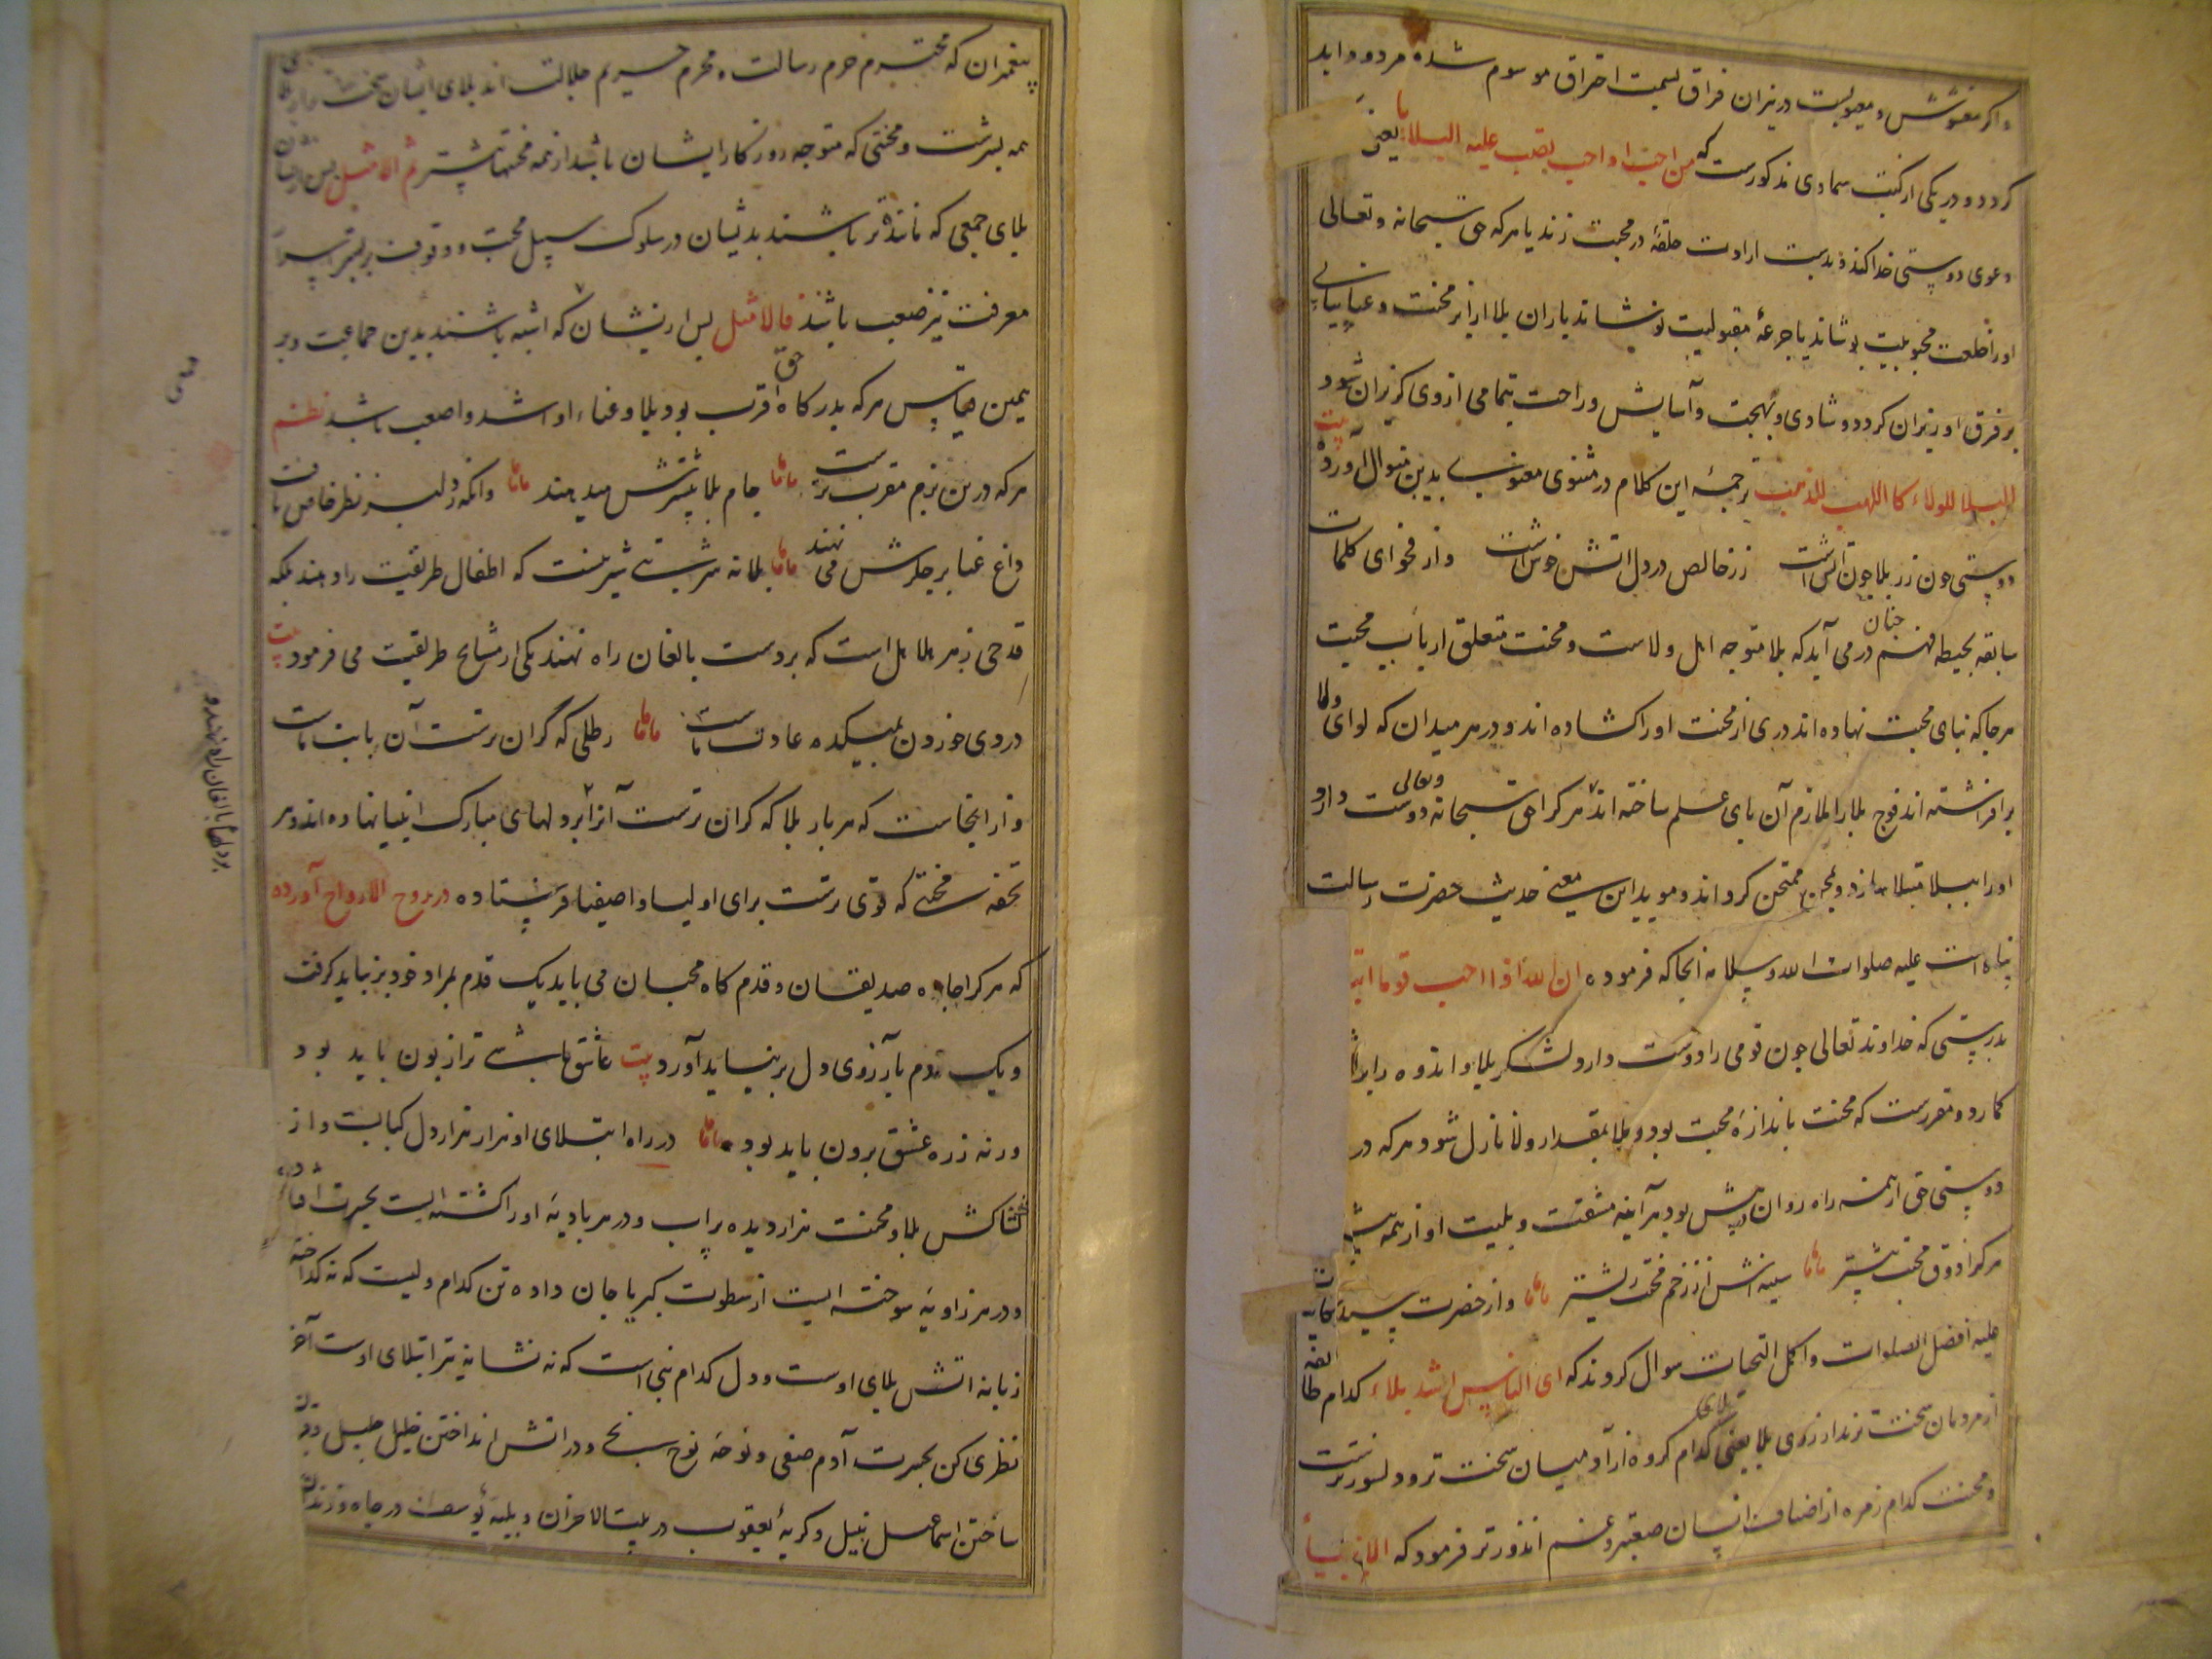 و اگر مغشوش و معیوبست در نیران فراق بسمت احتراق موسوم شده مردود ابد
کردد و در یکی از کتب سماوی مذکورست که من احب او احب یصب علیه البلاء یعنی
دعوی دوستی خدا کند و بدست ارادت حلقهٔ در محبت زند یا هر که حق سبحانه و تعالی
او را خلعت محبوبیت پوشاند یا جرعهٔ مقبولیت نوشاند باران بلا از ابر محنت و عنا
بر فرق او ریزان کردد و شادی و بهجت و آسایش و راحت بتمامی از وی کریزان شود
البلاء للولاء کا اللهب للذهب ترجمهٔ این کلام در مثنوی معنوی بدین منوال آورده بیت
دوستی چون زر بلا چون آتش است زر خالص در دل آتش خوش است و از فحوای کلمات
سابقه بحیطه فهم چنان در می آید که بلا متوجه اهل ولاست و محنت متعلق ارباب محبت
هر جا که بنای محبت نهاده اند دری از محنت او را کشاده اند و در هر میدان که لوای ولا
برافراشته اند فوج بلا را ملازم آن پای علم ساخته اند هر کرا حق سبحانه و تعالی دوست دارد
او را ببلا مبتلا سازد و بمحن ممتحن کرداند و موید این معنی حدیث حضرت رسالت
پناه است علیه صلوات الله و سلامه انجا که فرموده ان الله اذا احب قوما
بدرستی که خداوند تعالی چون قومی را دوست دارد لشکر بلا و اندوه را
کمارد و مقررست که محنت باندازهٔ محبت بود و بلا بمقدار ولا نازل شود و هر که در
دوستی حق از همه راه روان پیش بود هر آینه مشقت و بلیت او از همه بیش
هر کرا ذوق محبت بیشتر سینه اش از زخم محنت ریشتر و از حضرت سید کاینات
علیه افضل الصلوات و اکمل التحیات سوال کردند که ای الناس اشد بلاء کدام طایفه
از مردمان سخت ترند از روی بلا یعنی بلای کدام کروه از آدمیان سخت تر و دلسوزترست
و محنت کدام زمره از اصناف انسان صعبتر و غم اندوزتر فرمود که الانبیاء
پیغمبران که محترم حرم رسالت و محرم حریم جلالت اند بلای ایشان سخت
همه بیشرست و محنتی که متوجه روزکار ایشان باشد از همه محنتها بیشتر ثم الامثل پس
بلای جمعی که ماننده تر باشند بدیشان در سلوک سبیل محبت و وقوف بر
معرفت نیز صعب باشد فالامثل پس از ایشان که اشبه باشند بدین جماعت و بر
همین قیاس هر که بدرکاه حق اقرب بود بلا و عناء او اشد و اصعب باشد نظم
هر که درین بزم مقرب ترست جام بلا بیشترش میدهند وانکه ز دلبر نظر خاص یافت
داغ عنا بر جکرش می نهند بلا نه شربتی شیرینست که اطفال طریقت را دهند بلکه
قدحی زهر هلاهل است که بر دست بالغان راه نهند یکی از مشایخ طریقت می فرمود بیت
دردی خوردن بمیکده عادت ماست رطلی که گران ترست آن بابت ماست
و از اینجاست که هر بار بلا که کران ترست آنرا بر دلهای مبارک انبیا نهاده اند و هر
تحفه محنتی که قوی ترست برای اولیا و اصفیا فرستاده در روح الارواح آورده
که هر کرا جاده صدیقان و قدم کاه محبان می باید یک قدم بمراد خود بر نباید کرفت
و یک قدم بآرزوی دل بر نباید آورد بیت عاشق باشی ترا زبون باید بود
ورنه ز ره عشق برون باید بود در راه ابتلای او هزار هزار دل کبابست و از
کشاکش بلا و محنت هزار دیده پر آب و در هر بادیه او را کشته ایست بحیرت افتاده
و در هر زاویه سوخته ایست از سطوت کبریا جان داده تن کدام ولیست که نه کداخته
زبانه آتش بلای اوست و دل کدام نبی است که نه نشانه تیر ابتلای اوست آخر
نظری کن بحیرت آدم صفی و نوحهٔ نوح نجی و در آتش انداختن خلیل جلیل و
ساختن اسماعیل نبیل و کریهٔ یعقوب در بیت الاحزان و بلیهٔ یوسف در چاه و زندان
بر دست بالغان راه نهند و